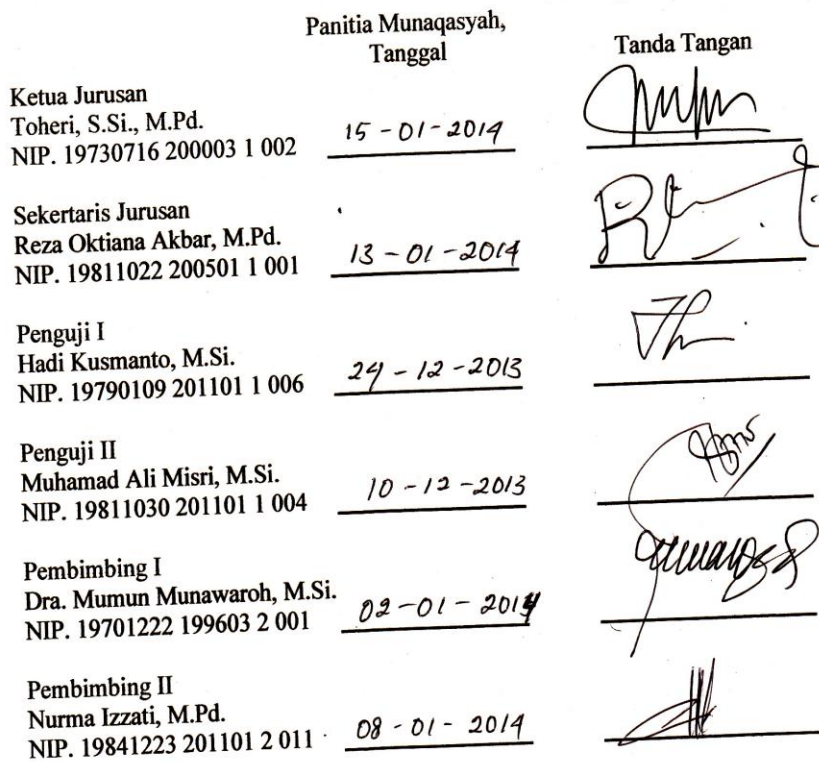 Panitia Munaqasyah,
Tanggal
Tanda Tangan
Ketua Jurusan
Toheri, S.Si., M.Pd.
NIP. 19730716 200003 1 002
15 - 01 - 2014
Sekertaris Jurusan
Reza Oktiana Akbar, M.Pd.
NIP. 19811022 200501 1 001
13 - 01 - 2014
Penguji I
Hadi Kusmanto, M.Si.
NIP. 19790109 201101 1 006
24 - 12 - 2013
Penguji II
Muhamad Ali Misri, M.Si.
NIP. 19811030 201101 1 004
10 - 12 - 2013
Pembimbing I
Dra. Mumun Munawaroh, M.Si.
NIP. 19701222 199603 2 001
02 - 01 - 2014
Pembimbing II
Nurma Izzati, M.Pd.
NIP. 19841223 201101 2 011
08 - 01 - 2014